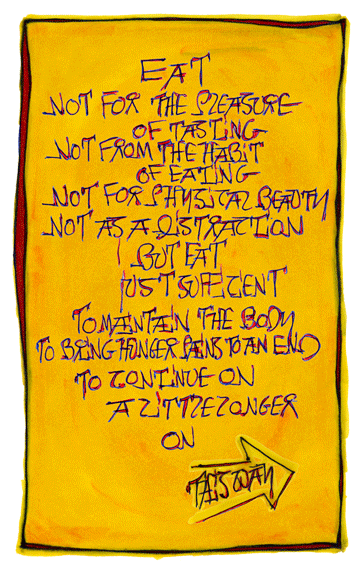 EAT
NOT FOR THE PLEASURE
OF TASTING
NOT FROM THE HABIT
OF EATING
NOT FOR PHYSICAL BEAUTY
NOT AS A DISTRACTION
BUT EAT
JUST SUFFICIENT
TO MAINTAIN THE BODY
TO BRING HUNGER PAINS TO AN END
TO CONTINUE ON
A LITTLE LONGER
ON
THIS WAY